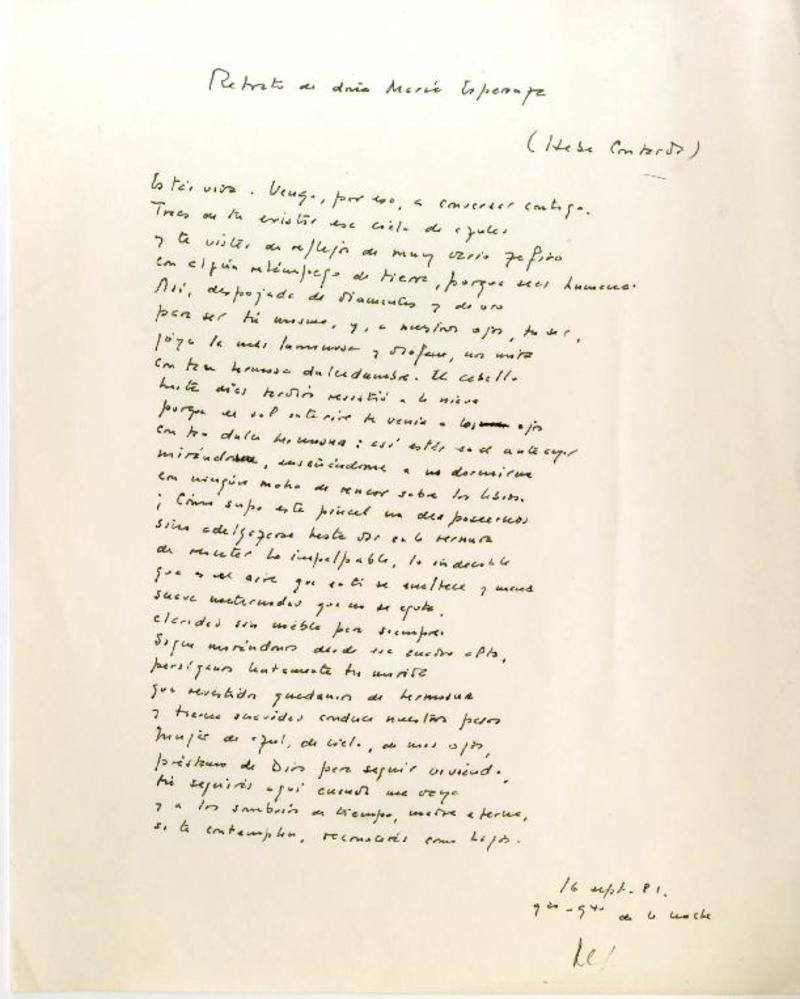 Retrato de doña María Esperanza
(Hebe Contardi)
Estás viva. Vengo, por eso, a conversar contigo.
Traes de tu existir ese cielo de azules
y te vistes de reflejos de muy vario zafiro
con algún relámpago de tierra, porque seas humana.
Así, despojada de diamantes y de oro
para ser tú misma, y, a nuestros ojos, tu ser,
joya la más luminosa y diáfana, nos mira
con tan hermosa dulcedumbre. El cabello
hasta días tardíos resistió a la nieve
porque el sol interior te venía a ojos
con tan dulce hermosura: así estás en el anteayer
mirándome, enseñándome a no dormirme
con ningún moho de rencor sobre los labios.
¡Cómo supo este pincel un día poseernos
sino adelgazarse hasta dar en la ternura
de rescatar lo impalpable, lo indecible
que es el aire que en ti se enaltece y mana
suave maternidad que no se agota,
claridad sin niebla para siempre.
Sigue mirándonos desde ese cuadro alto,
persíganos lentamente tu mirada
que revestidos quedamos de hermosura
y tierna suavidad conduce nuestros pasos
Mujer de azul, de cielo, de mis ojos,
préstamo de Dios para seguir viviendo,
tú seguirás aquí cuando me vaya
y a las sombras de tiempo, madre eterna,
si te contemplan, reconocerás como hijos.
16 sept. 81.
de la noche